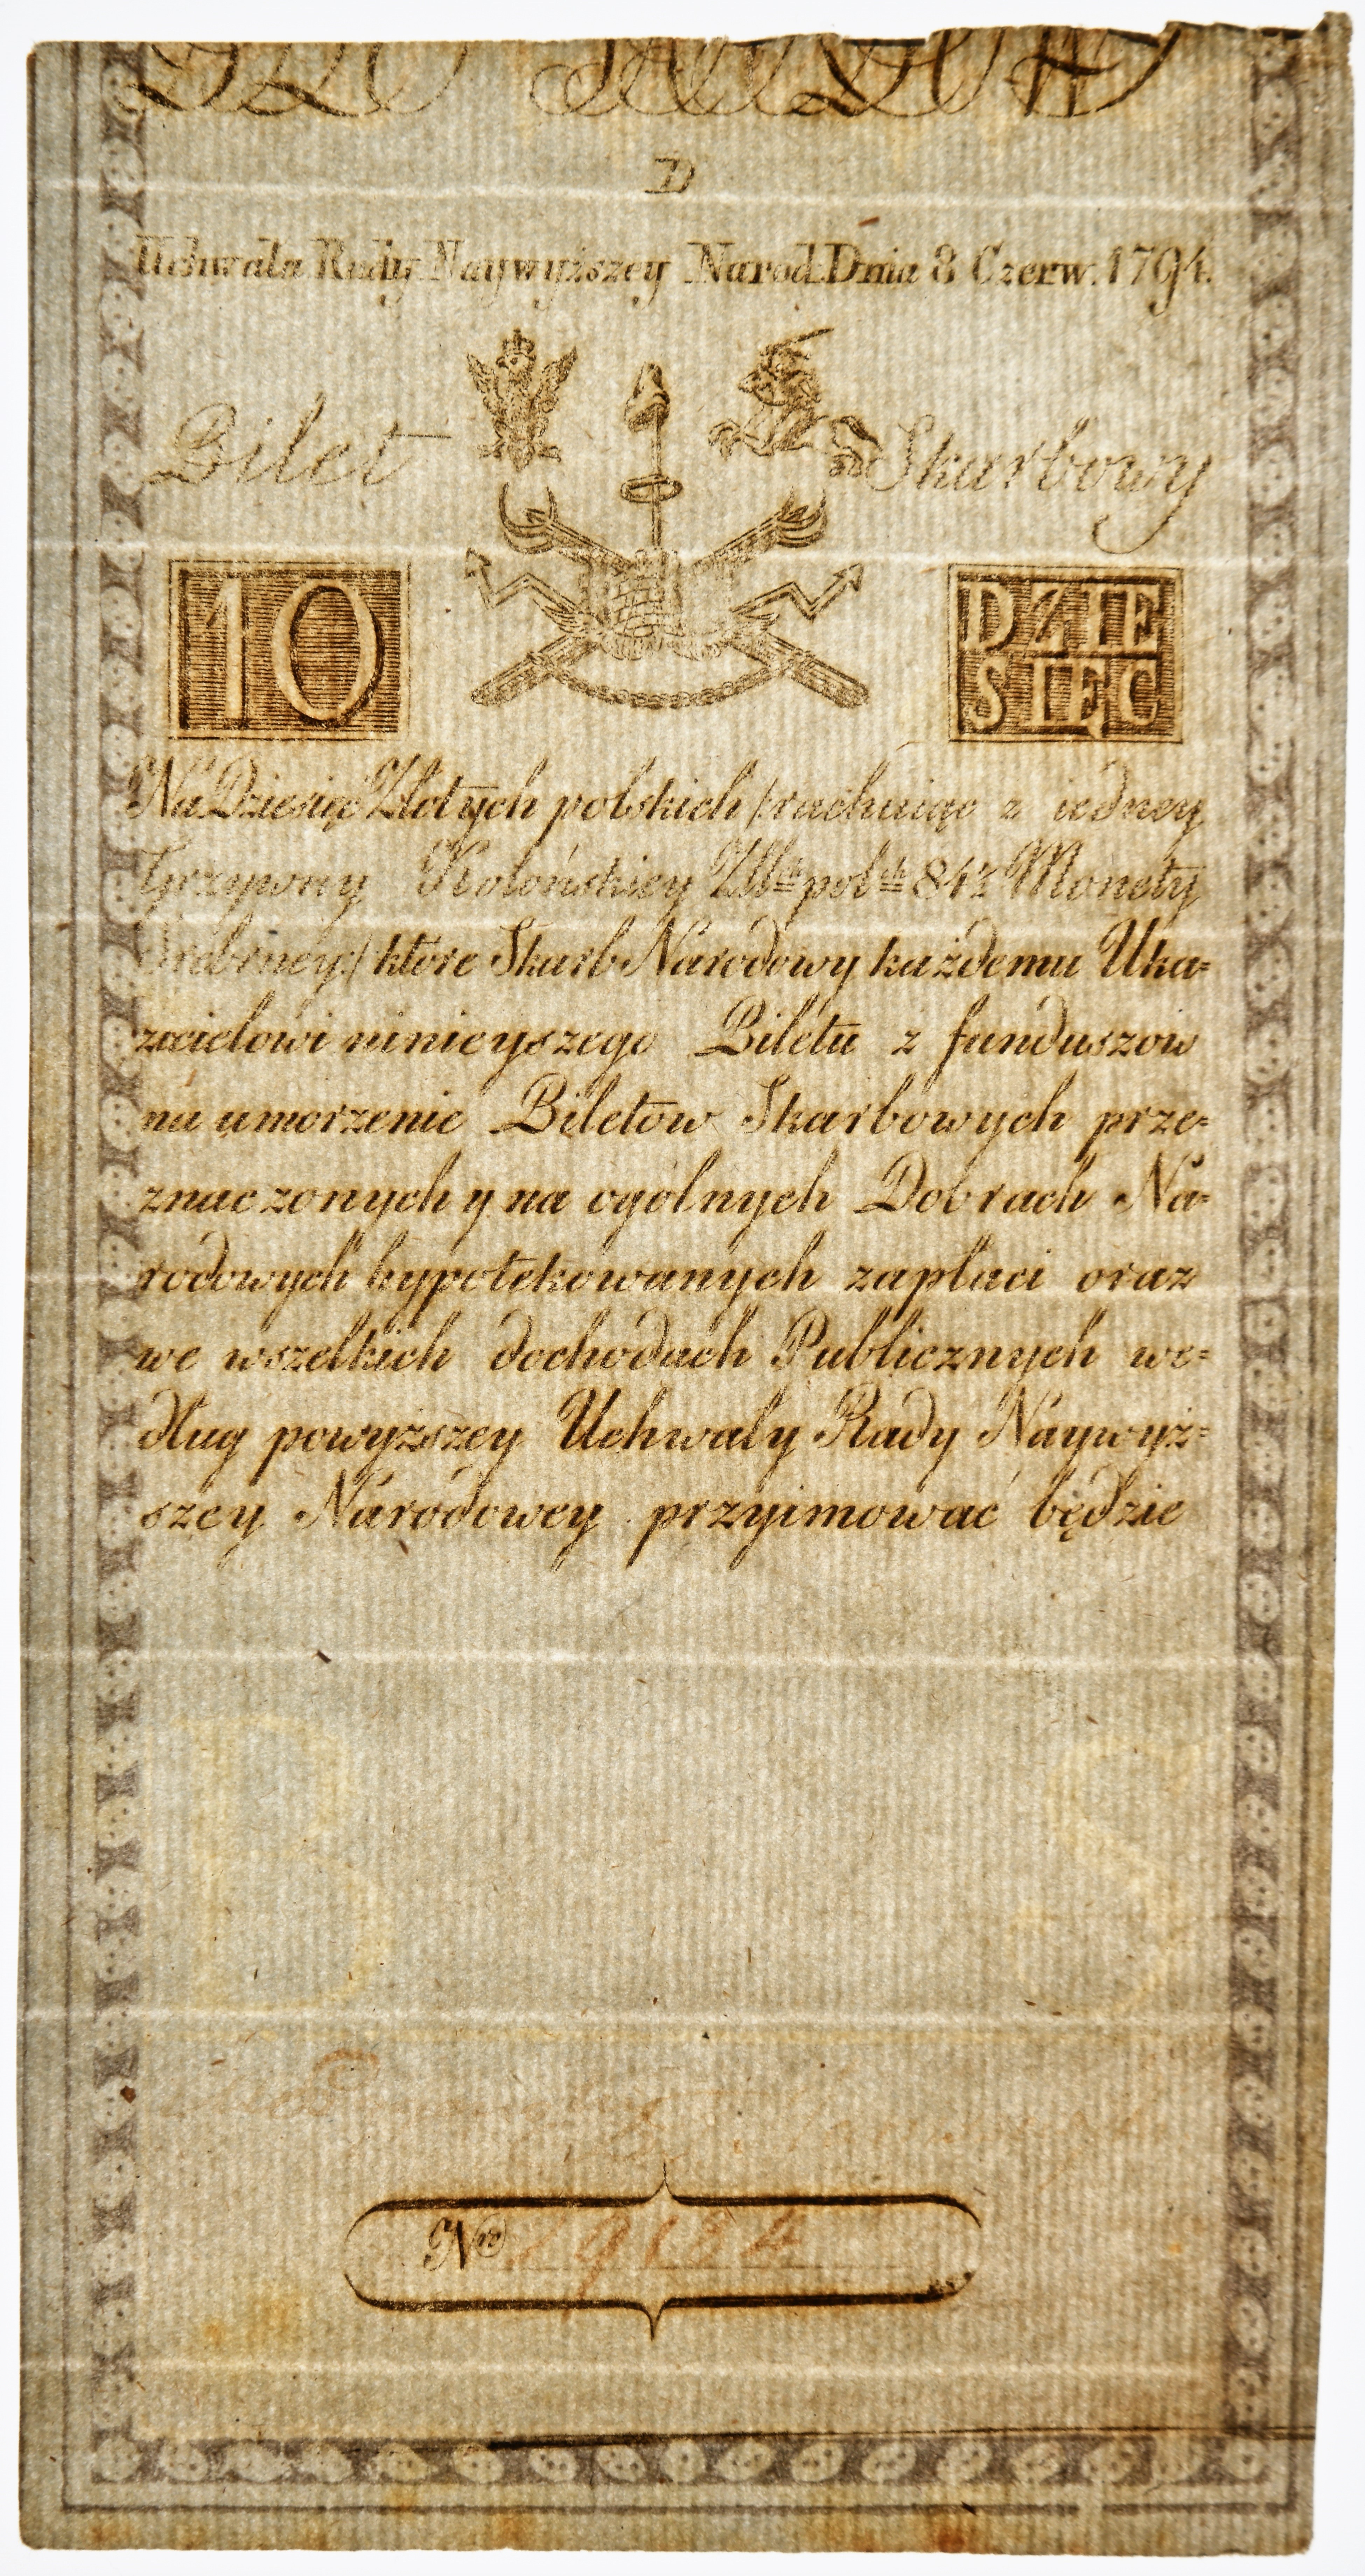 D
Uchwała Rady Naywyższey Narod. Dnia 8 Czerw. 1794.
Bilet Skarbowy
10 DZIE
SIĘĆ
Na Dziesięć Złotych polskich /: rachuiąc z iedney
Grzywny Kolońskiey Zll^ch pol^ch 84½ Monety
Srebrney :/ ktore Skarb Narodowy każdemu Uka=
zicielowi ninieyszego Biletu z funduszow
na umorzenie Biletow Skarbowych prze=
znaczonych y na ogólnych Dobrach Na=
rodowych hypotekowanych zapłaci oraz
we wszelkich dochodach Publicznych we=
dług powyższey Uchwały Rady Naywyż=
szey Narodowey przyimować będzie
B S
N^ro